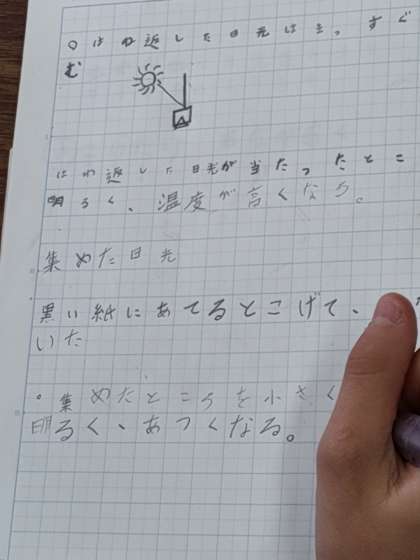 ○はね返した日光は、すぐ
む
はね返した日光が当たったとこ
明るく、温度が高くなる。
集めた日光
黒い紙にあてるとこげて、
いた
・集めたところを小さく
明るく、あつくなる。